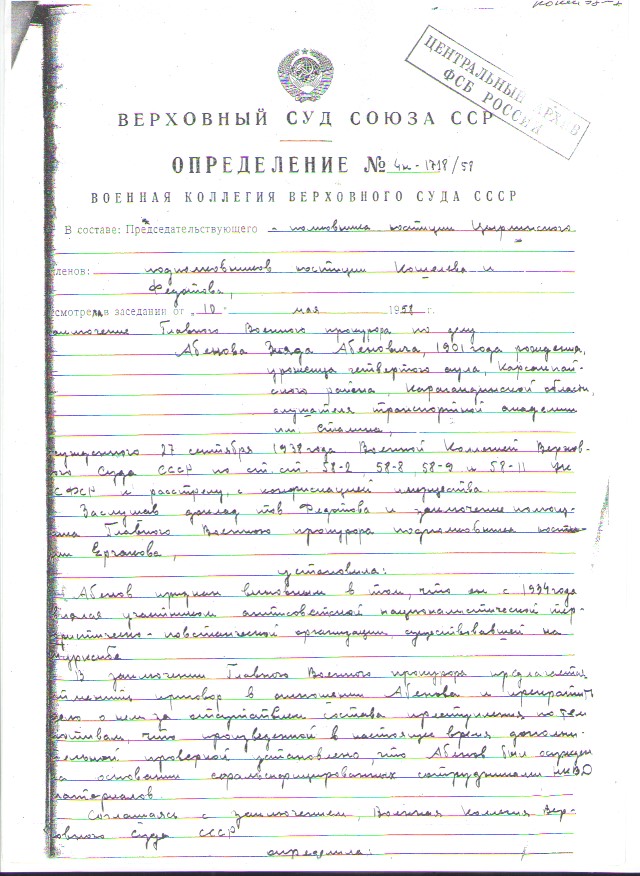 ЦЕНТРАЛЬНЫЙ АРХИВ
ФСБ РОССИИ
ВЕРХОВНЫЙ СУД СОЮЗА ССР
ОПРЕДЕЛЕНИЕ № 4н-1718/58
ВОЕННАЯ КОЛЛЕГИЯ ВЕРХОВНОГО СУДА СССР
В составе: Председательствующего - полковника юстиции
ленов: подполковников юстиции Кошелева и
Федотова,
смотрела в заседании от „10" мая 1958 г.
аключение Главного Военного прокурора по делу
Абенова Зияда Абеновича, 1901 года рождения,
уроженца четвертого аула, Карсакпай-
ского района, Карагандинской области,
слушателя транспортной академии
им. Сталина,
сужденного 27 сентября 1938 года Военной Коллегией Верхов-
ого Суда СССР по ст. ст. 58-2, 58-8, 58-9 и 58-11 УК
СФСР к расстрелу, с конфискацией имущества.
Заслушав доклад тов Федотова и заключение помощ-
ика Главного Военного прокурора подполковника юсти-
ции Ерганова,
установила:
Абенов признан виновным в том, что он с 1934 года
являлся участником антисоветской националистической тер-
ористическо-повстанческой организации, существовавшей на
Турксибе
В заключении Главного Военного прокурора предлагается
отменить приговор в отношении Абенова и прекратить
дело о нем за отсутствием состава преступления по тем
мотивам, что произведенной в настоящее время дополни-
тельной проверкой установлено, что Абенов был осужден
на основании сфальсифицированных сотрудниками НКВД
материалов.
Соглашаясь с заключением, Военная Коллегия Вер-
ховного Суда СССР
определила: